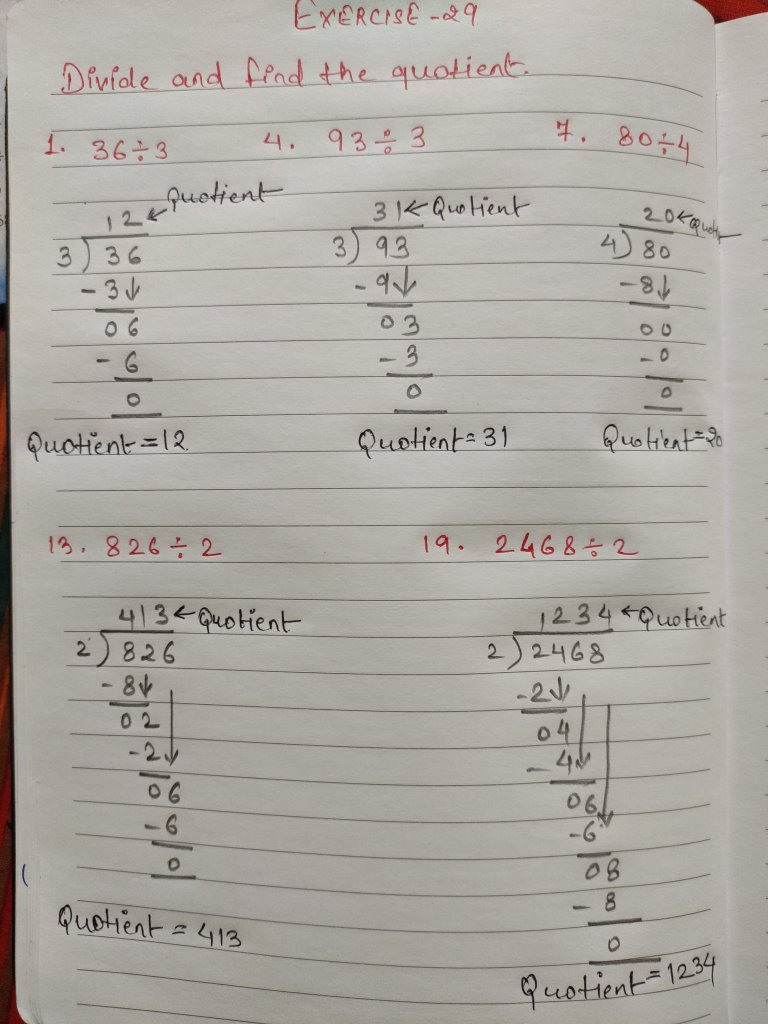 EXERCISE-29
Divide and find the quotient.
1. 36÷3
4. 93÷3
7. 80÷4
12 ← Quotient
3) 36
-3↓
06
-6
0
Quotient = 12
31 ← Quotient
3) 93
-9↓
03
-3
0
Quotient = 31
20 ← Quoti
4) 80
-8↓
00
-0
0
Quotient = 20
13. 826÷2
19. 2468÷2
413 ← Quotient
2) 826
-8↓
02
-2↓
06
-6
0
Quotient = 413
1234 ← Quotient
2) 2468
-2↓
04
-4↓
06
-6↓
08
-8
0
Quotient = 1234